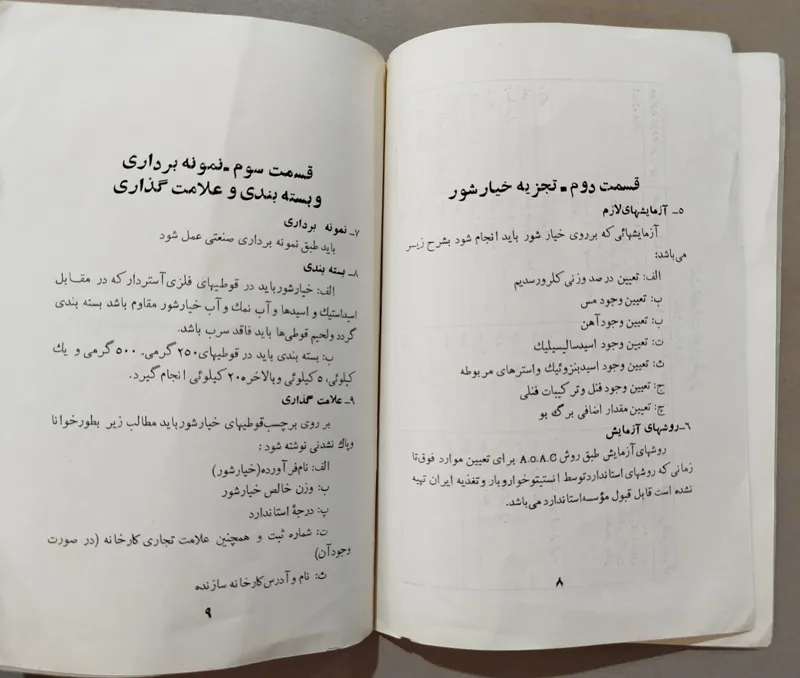 قسمت دوم ـ تجزیه خیارشور
۵ـ آزمایشهای لازم
آزمایشهائی که برروی خیار شور باید انجام شود بشرح زیر
می‌باشد:
الف: تعیین درصد وزنی کلرورسدیم
ب: تعیین وجود مس
ب: تعیین وجود آهن
ت: تعیین وجود اسیدسالیسیلیك
ث: تعیین وجود اسیدبنزوئیك واسترهای مربوطه
ج: تعیین وجود فنل وترکیبات فنلی
چ: تعیین مقدار اضافی برگ بو
۶ـ روشهای آزمایش
روشهای آزمایش طبق روش A.O.A.C برای تعیین موارد فوق تا
زمانی که روشهای استاندارد توسط انستیتو خواروبار و تغذیه ایران تهیه
نشده است قابل قبول مؤسسه استاندارد می‌باشد.
۸
قسمت سوم ـ نمونه برداری
و بسته بندی و علامت گذاری
۷ـ نمونه برداری
باید طبق نمونه برداری صنعتی عمل شود
۸ـ بسته بندی
الف: خیارشور باید در قوطیهای فلزی آستردار که در مقابل
اسیداستیك و اسیدها و آب نمك و آب خیارشور مقاوم باشد بسته بندی
گردد ولحیم قوطی‌ها باید فاقد سرب باشد.
ب: بسته بندی باید در قوطیهای ۲۵۰ گرمی ـ ۵۰۰ گرمی و یك
کیلوئی، ۵ کیلوئی و بالاخره ۲۰ کیلوئی انجام گیرد.
۹ـ علامت گذاری
بر روی برچسب قوطیهای خیارشور باید مطالب زیر بطور خوانا
و پاك نشدنی نوشته شود:
الف: نام فرآورده (خیارشور)
ب: وزن خالص خیارشور
پ: درجهٔ استاندارد
ت: شماره ثبت و همچنین علامت تجاری کارخانه (در صورت
وجود آن)
ث: نام و آدرس کارخانه سازنده
۹